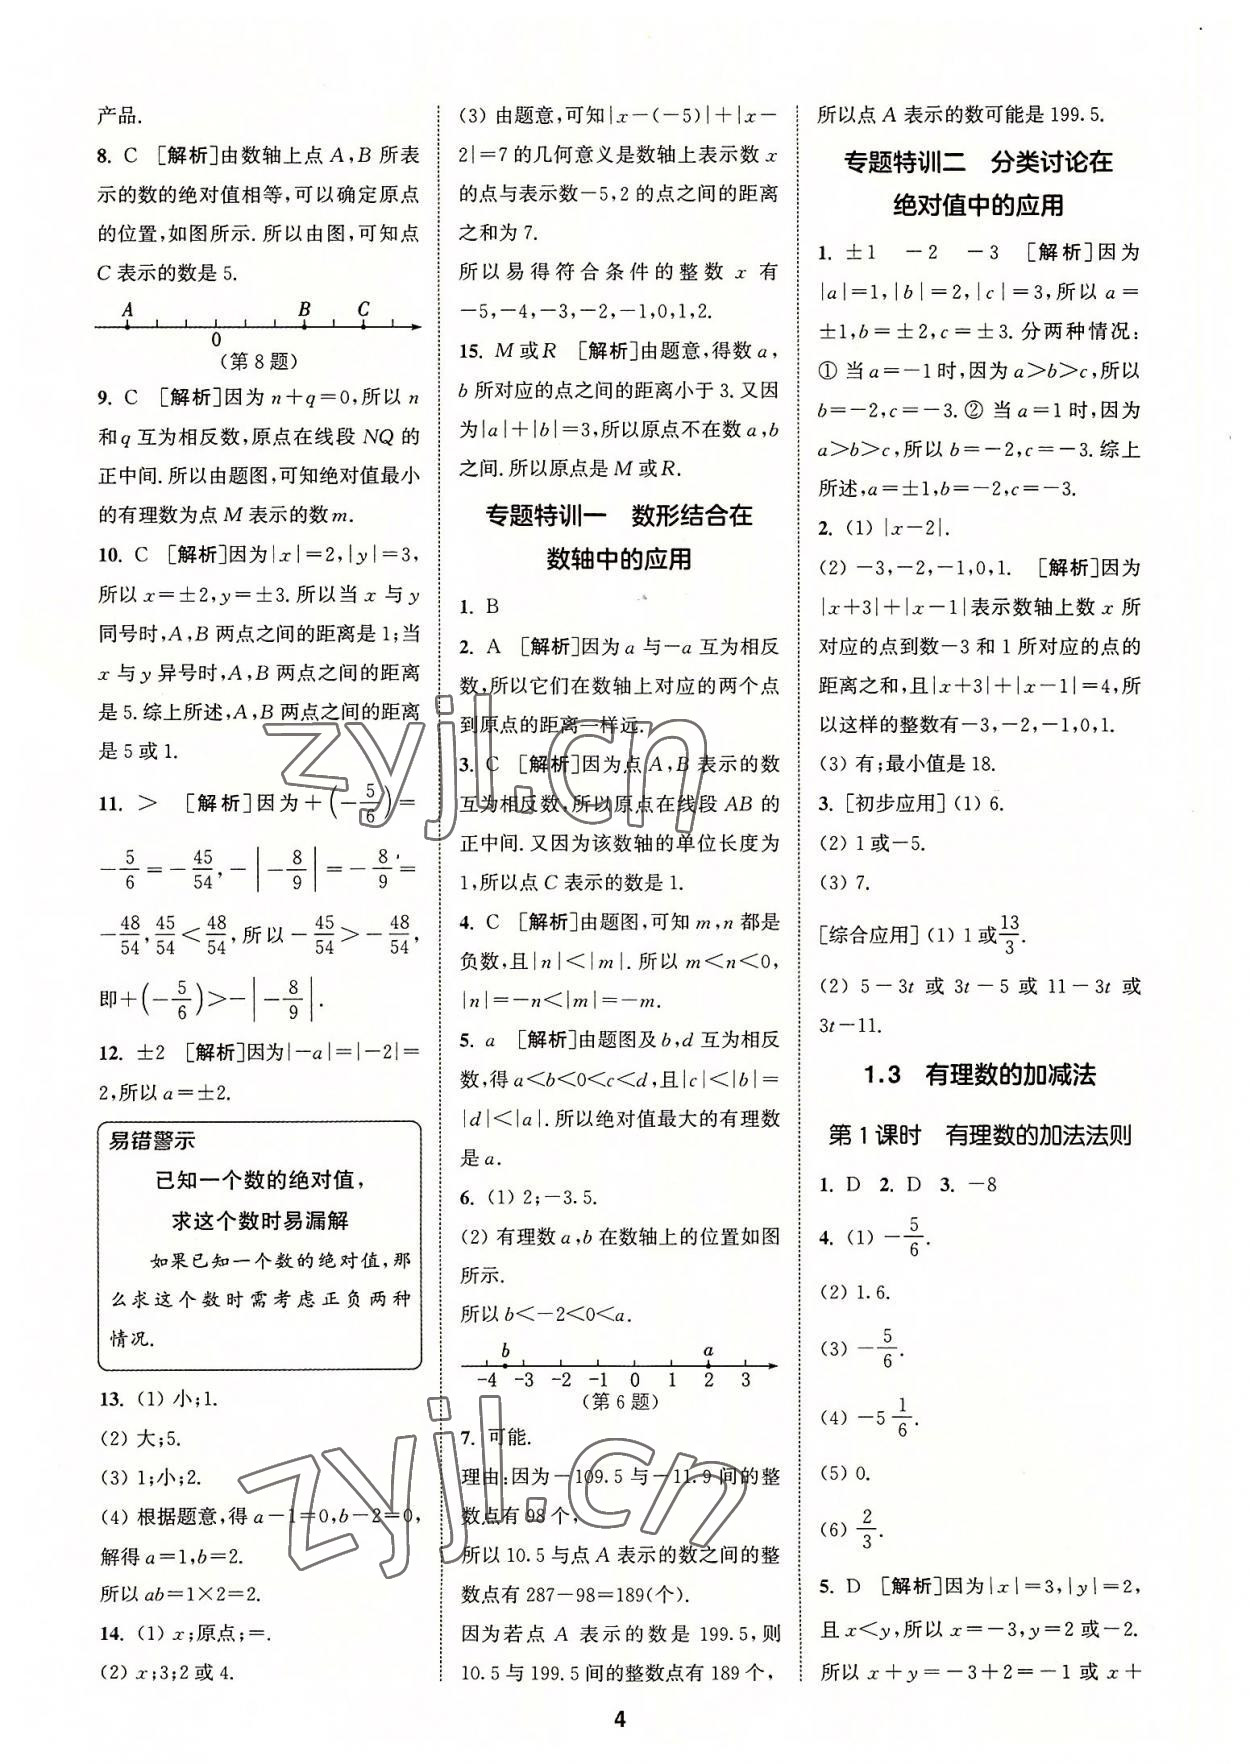 产品.
8. C [解析]由数轴上点 A,B 所表
示的数的绝对值相等,可以确定原点
的位置,如图所示.所以由图,可知点
C 表示的数是 5.
A B C
0
(第 8 题)
9. C [解析]因为 n+q=0,所以 n
和 q 互为相反数,原点在线段 NQ 的
正中间.所以由题图,可知绝对值最小
的有理数为点 M 表示的数 m.
10. C [解析]因为|x|=2,|y|=3,
所以 x=±2,y=±3.所以当 x 与 y
同号时,A,B 两点之间的距离是 1;当
x 与 y 异号时,A,B 两点之间的距离
是 5.综上所述,A,B 两点之间的距离
是 5 或 1.
11. > [解析]因为+(-5/6)=
-5/6=-45/54,-|-8/9|=-8/9=
-48/54,45/54<48/54,所以-45/54>-48/54,
即+(-5/6)>-|-8/9|.
12. ±2 [解析]因为|-a|=|-2|=
2,所以 a=±2.
易错警示
已知一个数的绝对值,
求这个数时易漏解
如果已知一个数的绝对值,那
么求这个数时需考虑正负两种
情况.
13. (1) 小;1.
(2) 大;5.
(3) 1;小;2.
(4) 根据题意,得 a-1=0,b-2=0,
解得 a=1,b=2.
所以 ab=1×2=2.
14. (1) x;原点;=.
(2) x;3;2 或 4.
(3) 由题意,可知|x-(-5)|+|x-
2|=7 的几何意义是数轴上表示数 x
的点与表示数-5,2 的点之间的距离
之和为 7.
所以易得符合条件的整数 x 有
-5,-4,-3,-2,-1,0,1,2.
15. M 或 R [解析]由题意,得数 a,
b 所对应的点之间的距离小于 3.又因
为|a|+|b|=3,所以原点不在数 a,b
之间.所以原点是 M 或 R.
专题特训一 数形结合在
数轴中的应用
1. B
2. A [解析]因为 a 与-a 互为相反
数,所以它们在数轴上对应的两个点
到原点的距离一样远.
3. C [解析]因为点 A,B 表示的数
互为相反数,所以原点在线段 AB 的
正中间.又因为该数轴的单位长度为
1,所以点 C 表示的数是 1.
4. C [解析]由题图,可知 m,n 都是
负数,且|n|<|m|.所以 m<n<0,
|n|=-n<|m|=-m.
5. a [解析]由题图及 b,d 互为相反
数,得 a<b<0<c<d,且|c|<|b|=
|d|<|a|.所以绝对值最大的有理数
是 a.
6. (1) 2;-3.5.
(2) 有理数 a,b 在数轴上的位置如图
所示.
所以 b<-2<0<a.
b a
-4 -3 -2 -1 0 1 2 3
(第 6 题)
7. 可能.
理由:因为-109.5 与-11.9 间的整
数点有 98 个,
所以 10.5 与点 A 表示的数之间的整
数点有 287-98=189(个).
因为若点 A 表示的数是 199.5,则
10.5 与 199.5 间的整数点有 189 个,
所以点 A 表示的数可能是 199.5.
专题特训二 分类讨论在
绝对值中的应用
1. ±1 -2 -3 [解析]因为
|a|=1,|b|=2,|c|=3,所以 a=
±1,b=±2,c=±3.分两种情况:
① 当 a=-1 时,因为 a>b>c,所以
b=-2,c=-3.② 当 a=1 时,因为
a>b>c,所以 b=-2,c=-3.综上
所述,a=±1,b=-2,c=-3.
2. (1) |x-2|.
(2) -3,-2,-1,0,1. [解析]因为
|x+3|+|x-1|表示数轴上数 x 所
对应的点到数-3 和 1 所对应的点的
距离之和,且|x+3|+|x-1|=4,所
以这样的整数有-3,-2,-1,0,1.
(3) 有;最小值是 18.
3. [初步应用](1) 6.
(2) 1 或-5.
(3) 7.
[综合应用](1) 1 或13/3.
(2) 5-3t 或 3t-5 或 11-3t 或
3t-11.
1.3 有理数的加减法
第 1 课时 有理数的加法法则
1. D 2. D 3. -8
4. (1) -5/6.
(2) 1.6.
(3) -5/6.
(4) -5 1/6.
(5) 0.
(6) 2/3.
5. D [解析]因为|x|=3,|y|=2,
且 x<y,所以 x=-3,y=2 或-2.
所以 x+y=-3+2=-1 或 x+
4
zyjl.cn
zyjl.cn